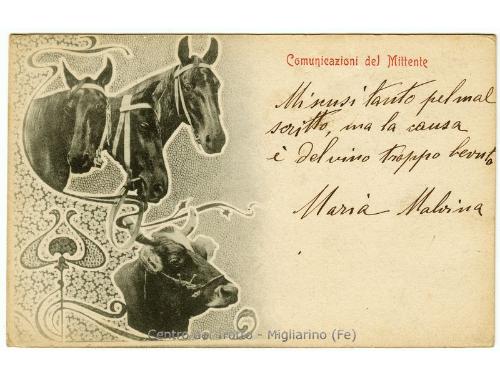 Comunicazioni del Mittente
Mi scusi tanto pel mal
scritto, ma la causa
è del vino troppo bevuto
Maria Malvina
Centro del Trotto - Migliarino (Fe)